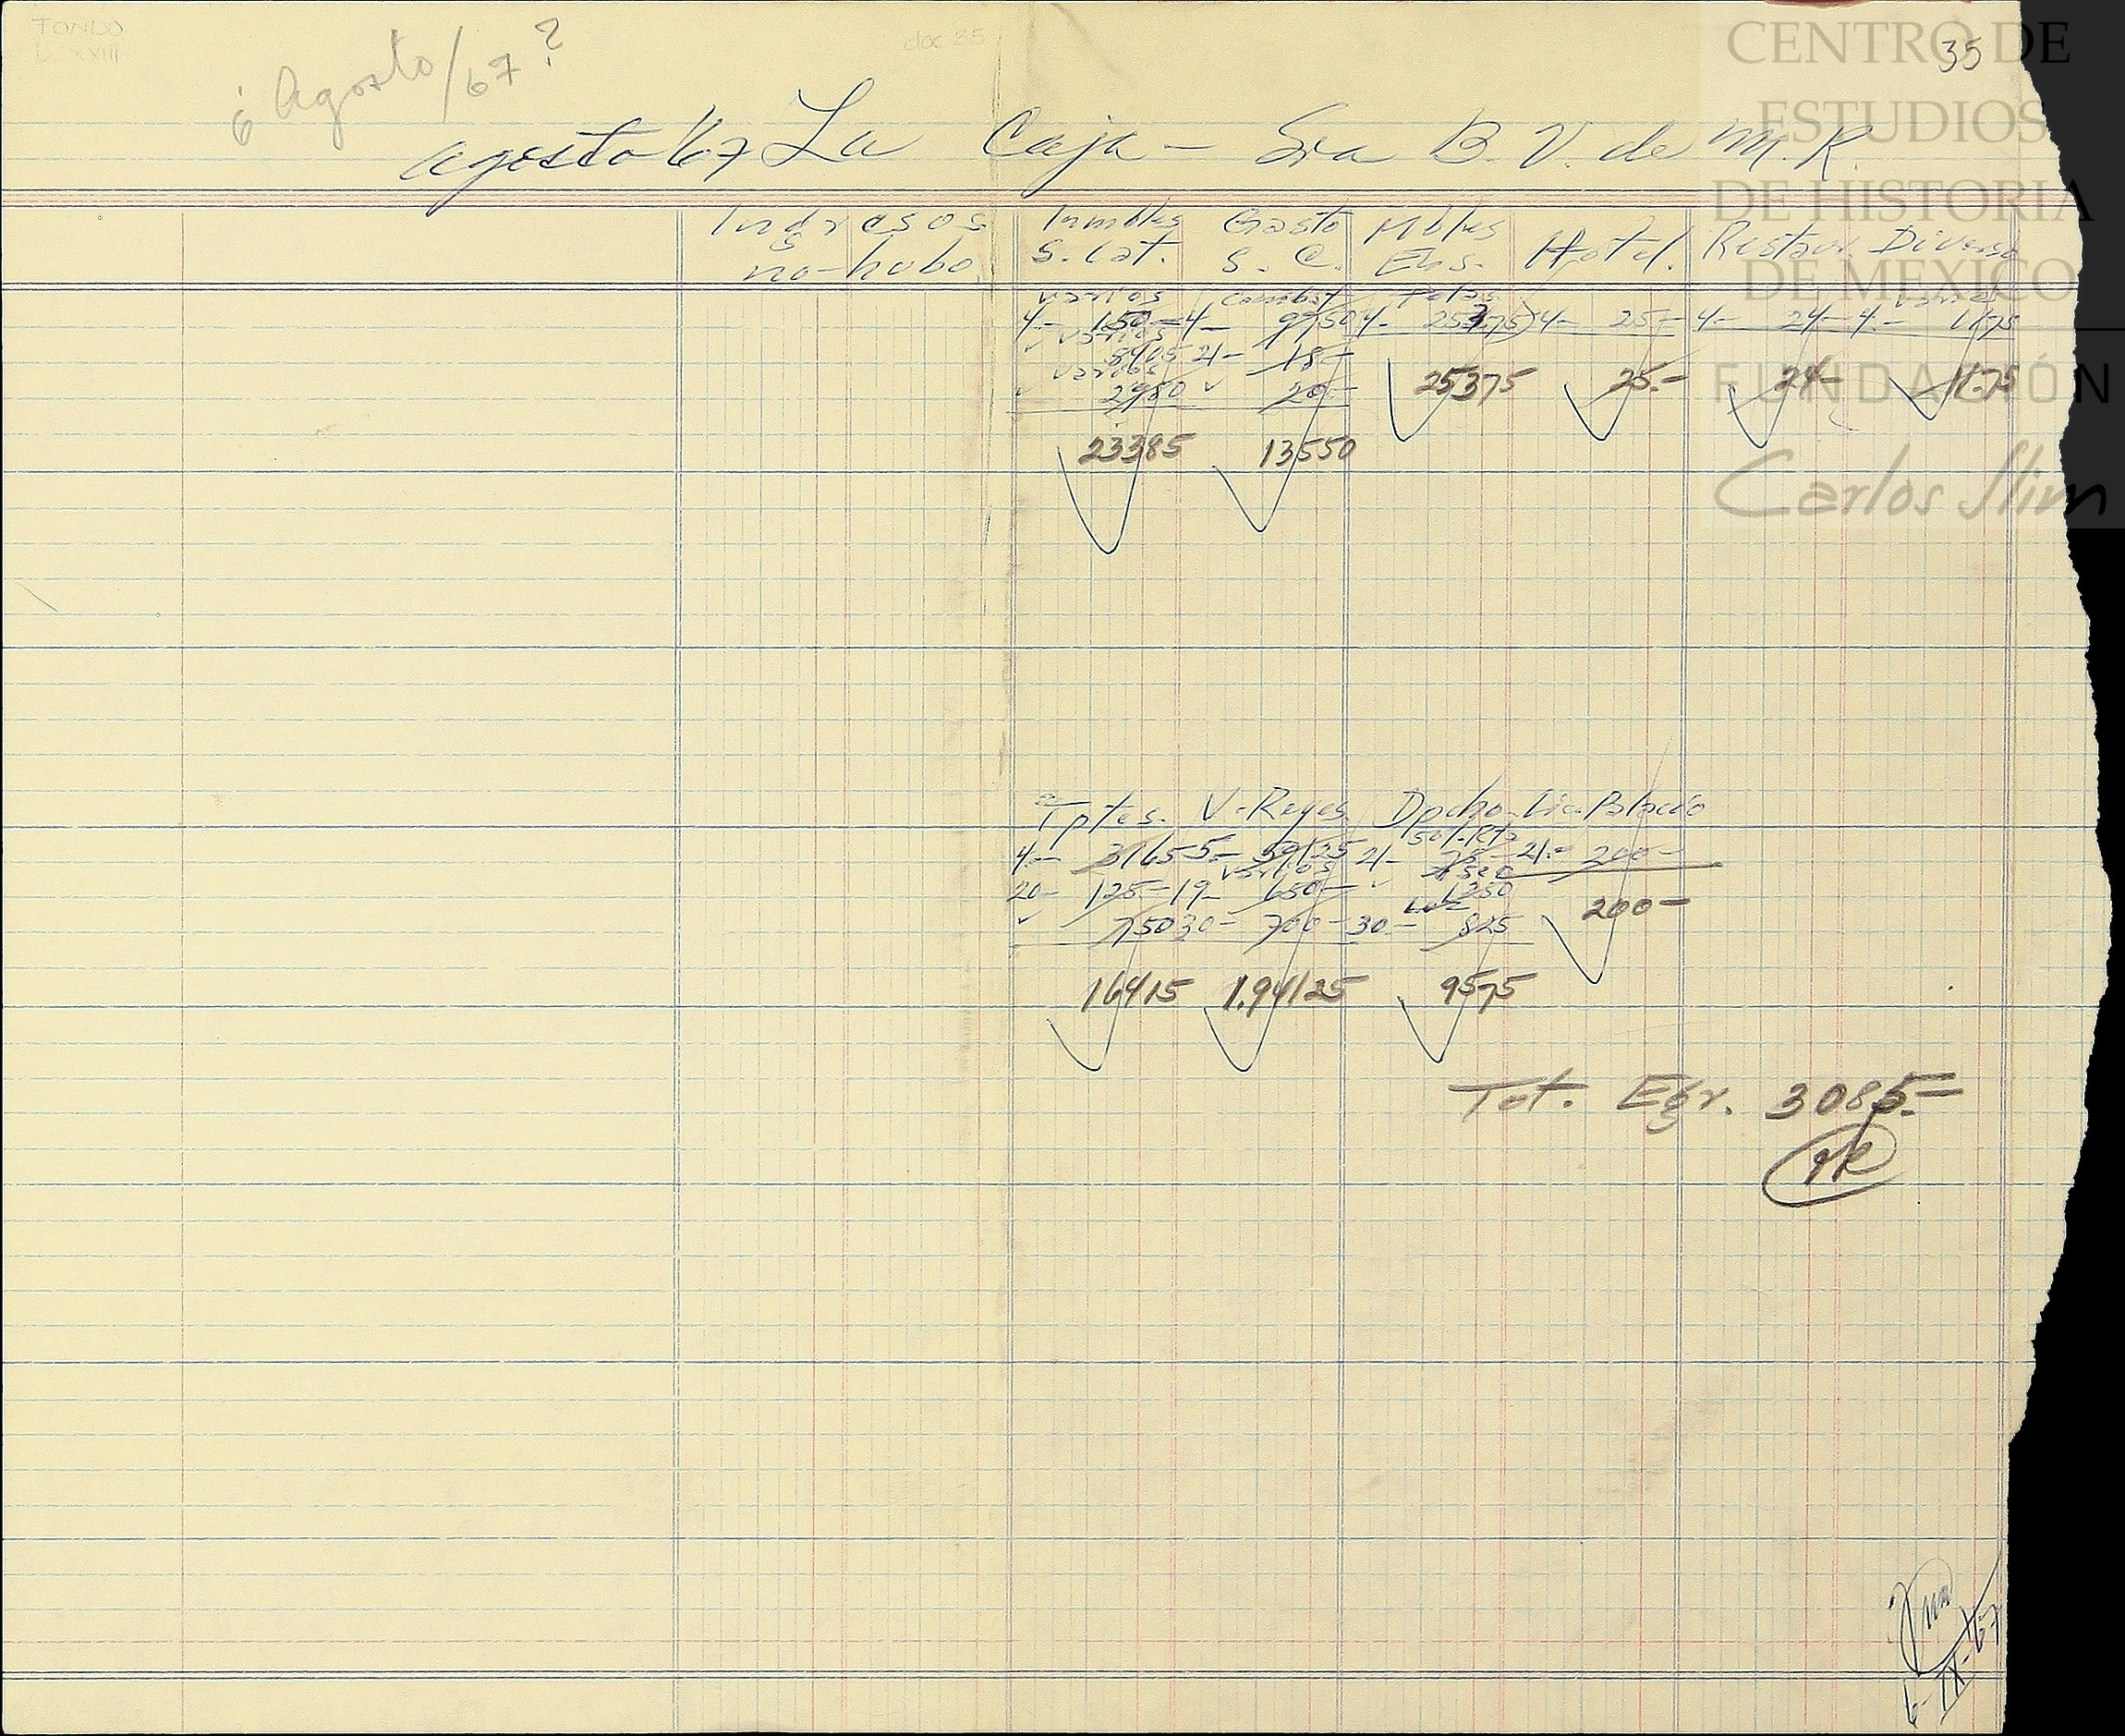 FONDO
DCXXIII
doc 35
35
¿Agosto/67?
agosto/67 La Caja - Sra B. V. de M. R.
CENTRO DE
ESTUDIOS
DE HISTORIA
DE MEXICO
FUNDACIÓN
Carlos Slim
Ingresos Inmbles Gasto Mbles Hotel. Restaur. Diverso
no-hubo S. Cat. S. C. Ens.
varios Combst varios
4- 150- 4- 9750 4- 25375 4- 25- 4- 24- 4- 1175
varios
5405 21- 18-
varios
2980 20-
25375 25.- 24- 11.75
23385 13550
Tptes. V-Reyes Dpcho Lic. Polacdo
4- 3165 5- 59125 21- 75- 21- 200-
varios Aseo
20- 125- 19- 650- 1250
Luz
750 30- 700- 30- 825
200-
16415 1.94125 9575
Tot. Egr. 3085.-
ok
6-IX-67